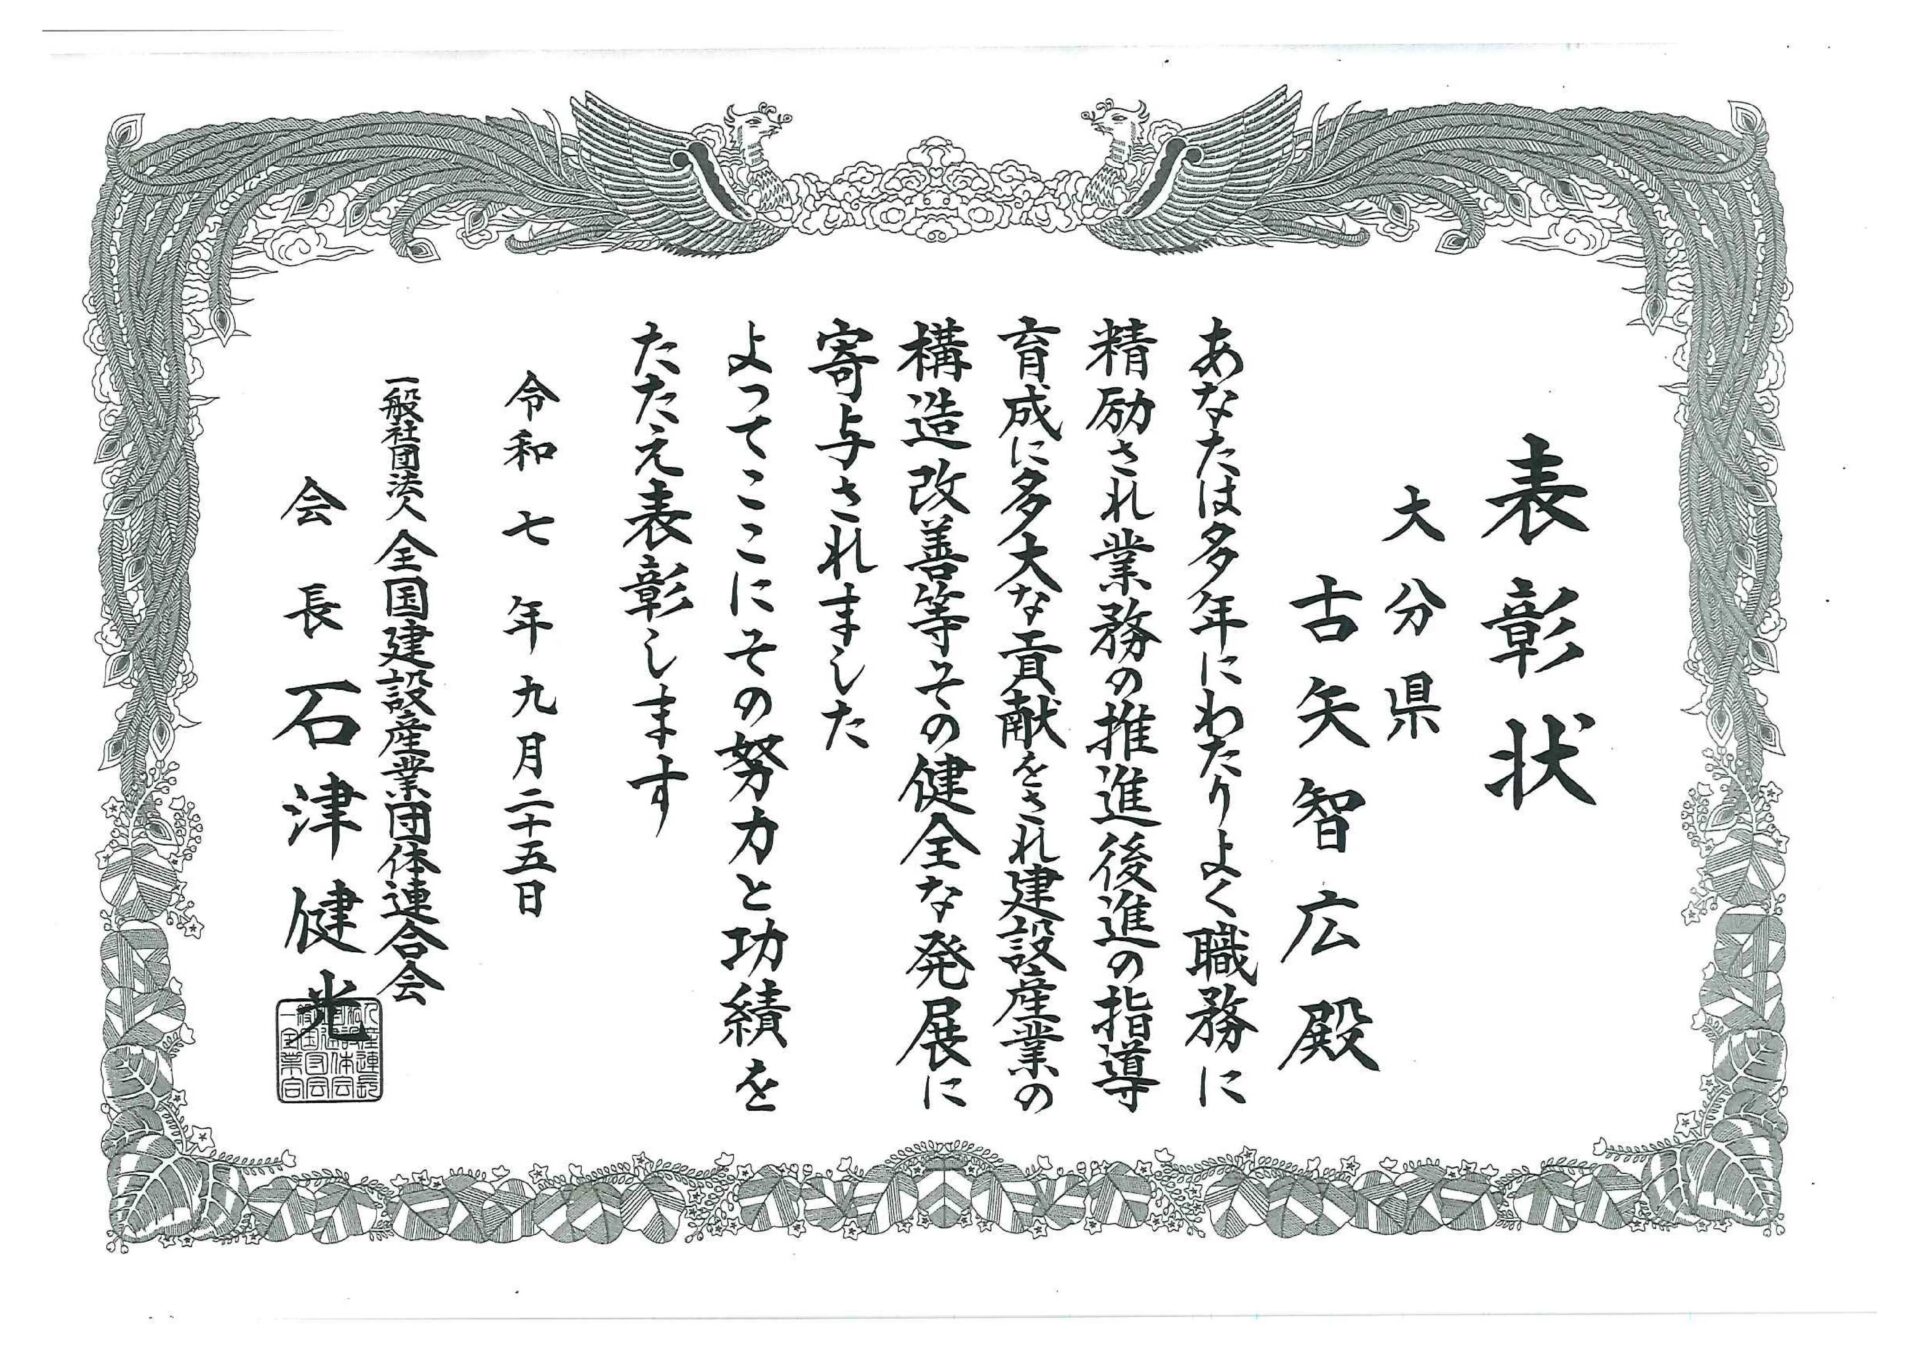 表彰状
大分県
古矢智広殿
あなたは多年にわたりよく職務に
精励され業務の推進後進の指導
育成に多大な貢献をされ建設産業の
構造改善等その健全な発展に
寄与されました
よってここにその努力と功績を
たたえ表彰します
令和七年九月二十五日
一般社団法人全国建設産業団体連合会
会長石津健光